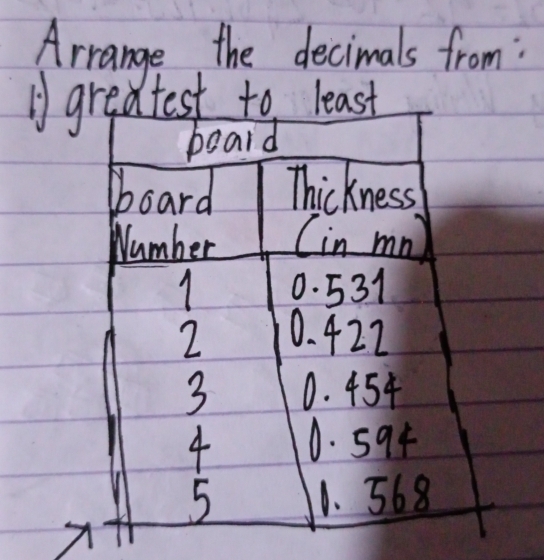 Arrange the decimals from:
i) greatest to least
board
board Number Thickness (in mn)
1 0.531
2 0.422
3 0.454
4 0.594
5 0.568